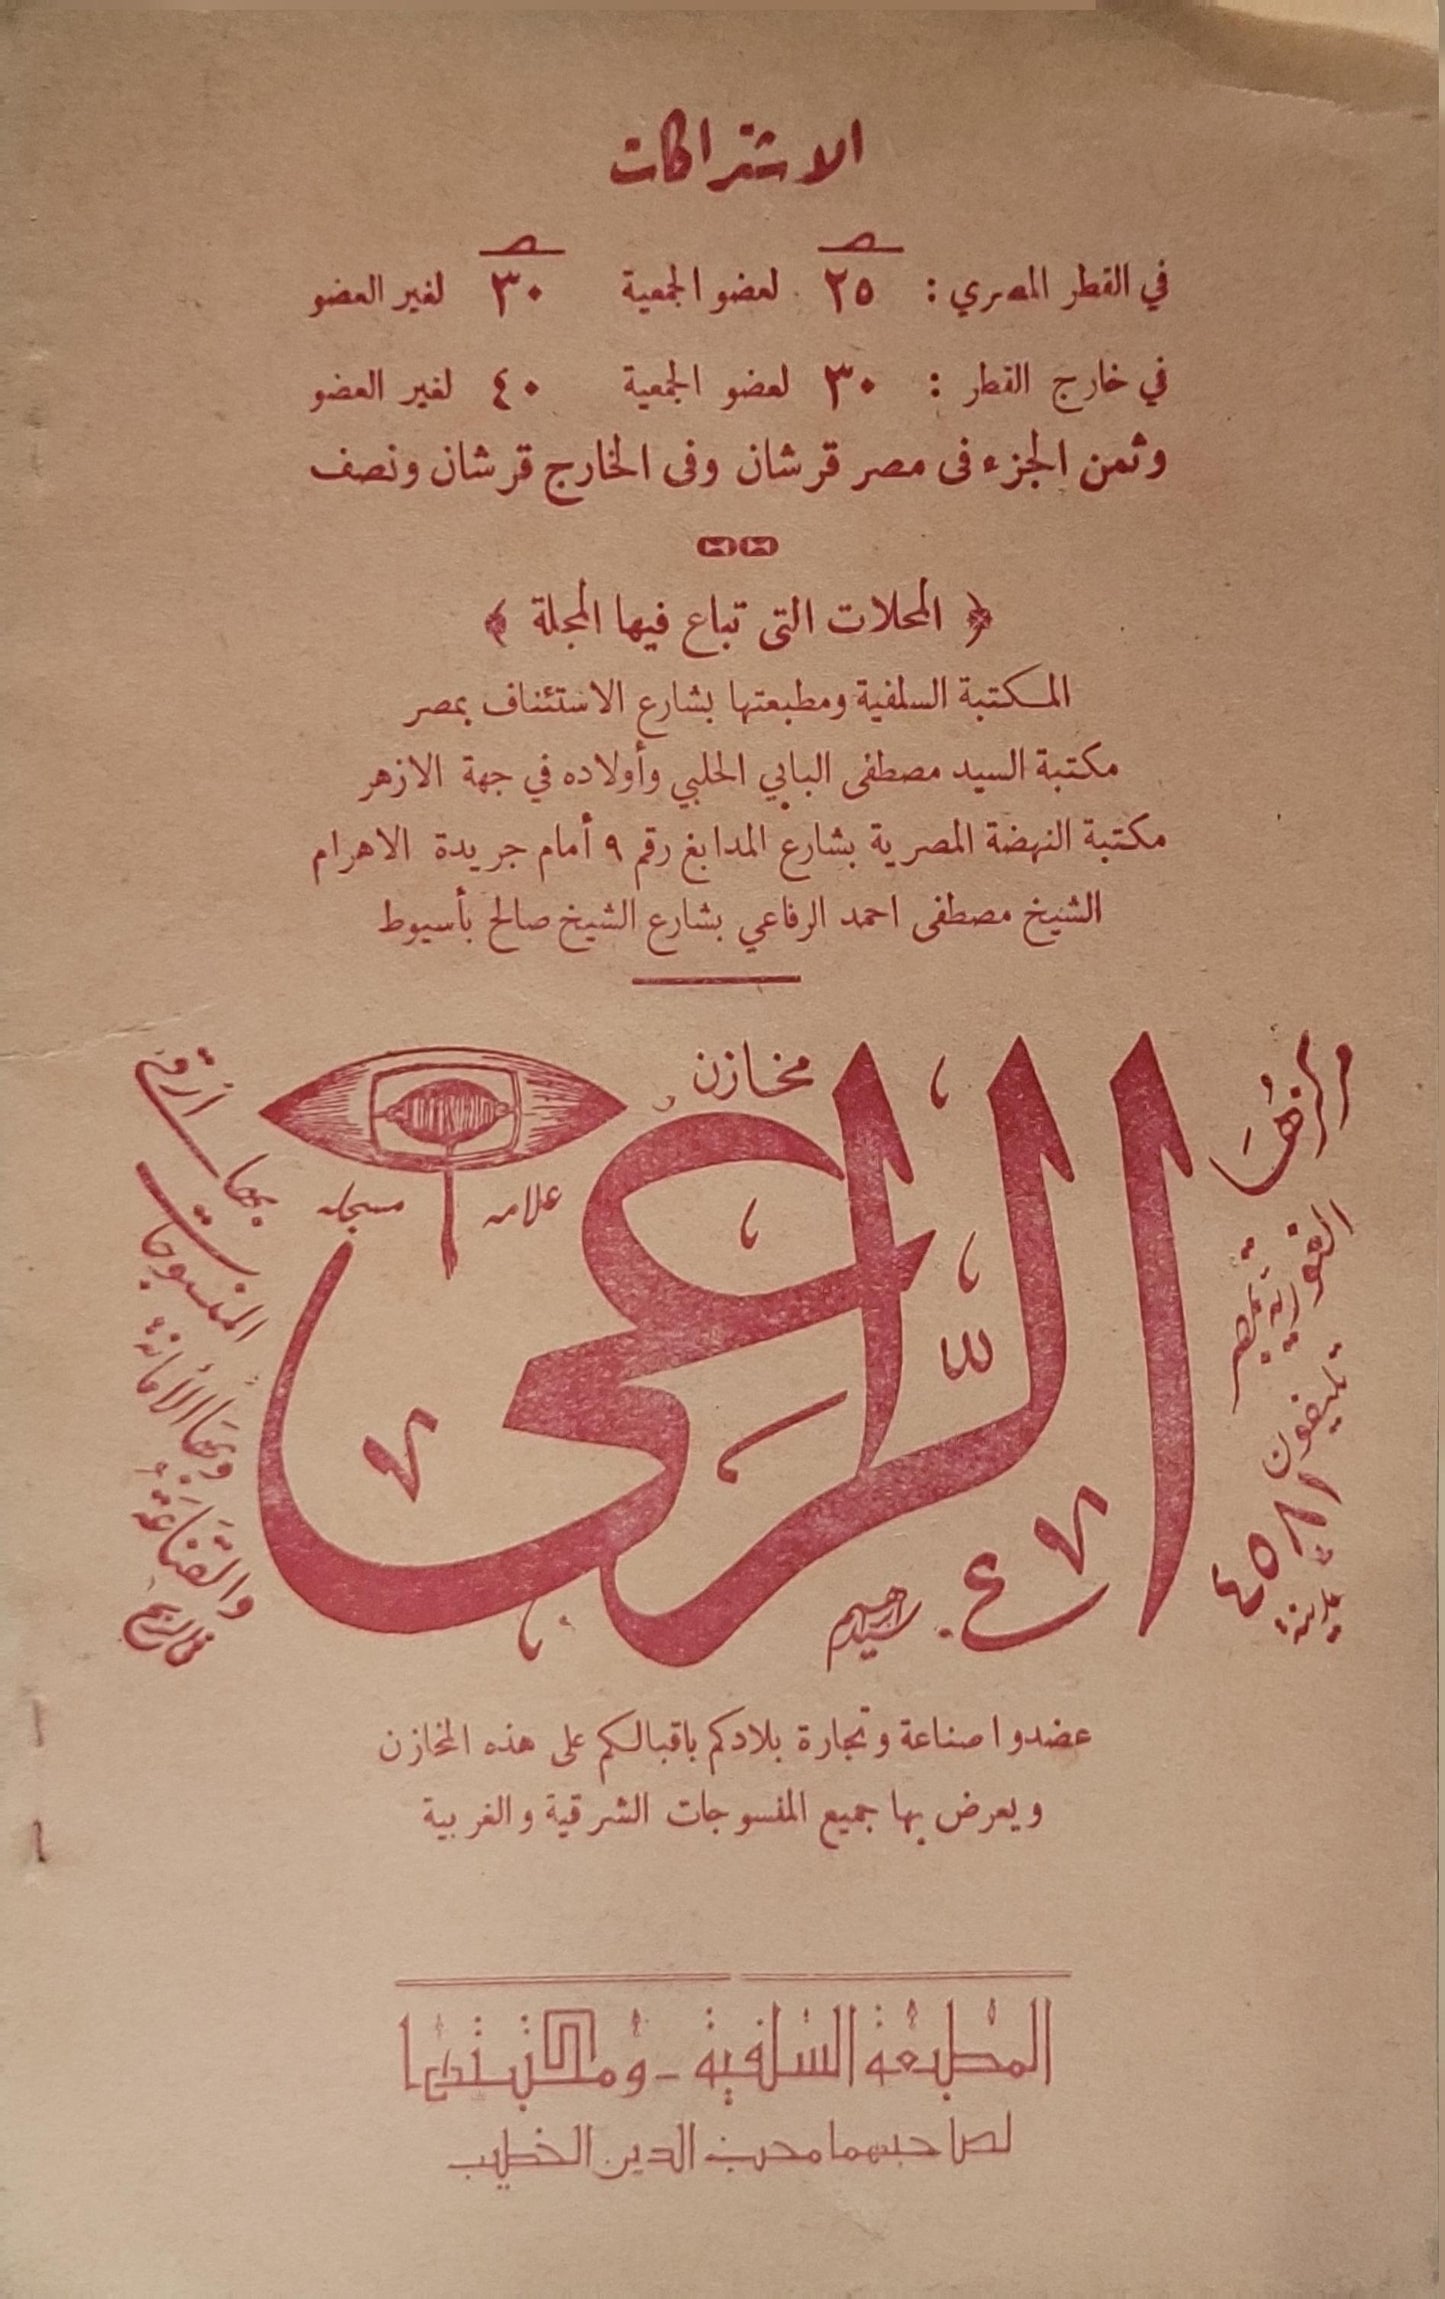 الاشتراكات
في القطر المصري : ٢٥ لعضو الجمعية ٣٠ لغير العضو
في خارج القطر : ٣٠ لعضو الجمعية ٤٠ لغير العضو
وثمن الجزء فى مصر قرشان وفى الخارج قرشان ونصف
﴿ المحلات التى تباع فيها المجلة ﴾
المكتبة السلفية ومطبعتها بشارع الاستئناف بمصر
مكتبة السيد مصطفى البابي الحلبي وأولاده في جهة الازهر
مكتبة النهضة المصرية بشارع المدابغ رقم ٩ أمام جريدة الاهرام
الشيخ مصطفى احمد الرفاعي بشارع الشيخ صالح بأسيوط
مخازن
الراعى
علامه مسجله
مركزها
الغورية بمصر
تليفون
٤٥٨١
مدينة
بها أرقى
المنسوجات
وبها الأمانة
والقناعة
فى الربح
عضدوا صناعة وتجارة بلادكم باقبالكم على هذه المخازن
ويعرض بها جميع المنسوجات الشرقية والغربية
المطبعة السلفية - ومكتبتها
لصاحبهما محب الدين الخطيب